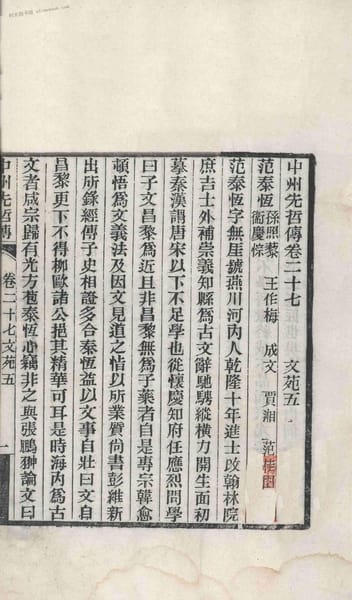 中州先哲傳卷二十七　文苑五
范泰恆　孫照黎　王作梅　成文　賈湘　范
衞慶傺
范泰恆字無厓號燕川河內人乾隆十年進士改翰林院
庶吉士外補崇義知縣爲古文辭馳騁縱橫力開生面初
摹秦漢謂唐宋以下不足學也從懷慶知府任應烈問學
曰子文昌黎爲近且非昌黎無爲子藥者自是專宗韓愈
頓悟爲文義法及因文見道之恉以所業質尙書彭維新
出所錄經傳子史相證多合泰恆益以文事自壯曰文自
昌黎更下不得柳歐諸公挹其精華可耳是時海內爲古
文者咸宗歸有光方苞泰恆心竊非之與張鵬翀論文曰
中州先哲傳　卷二十七文苑五　一